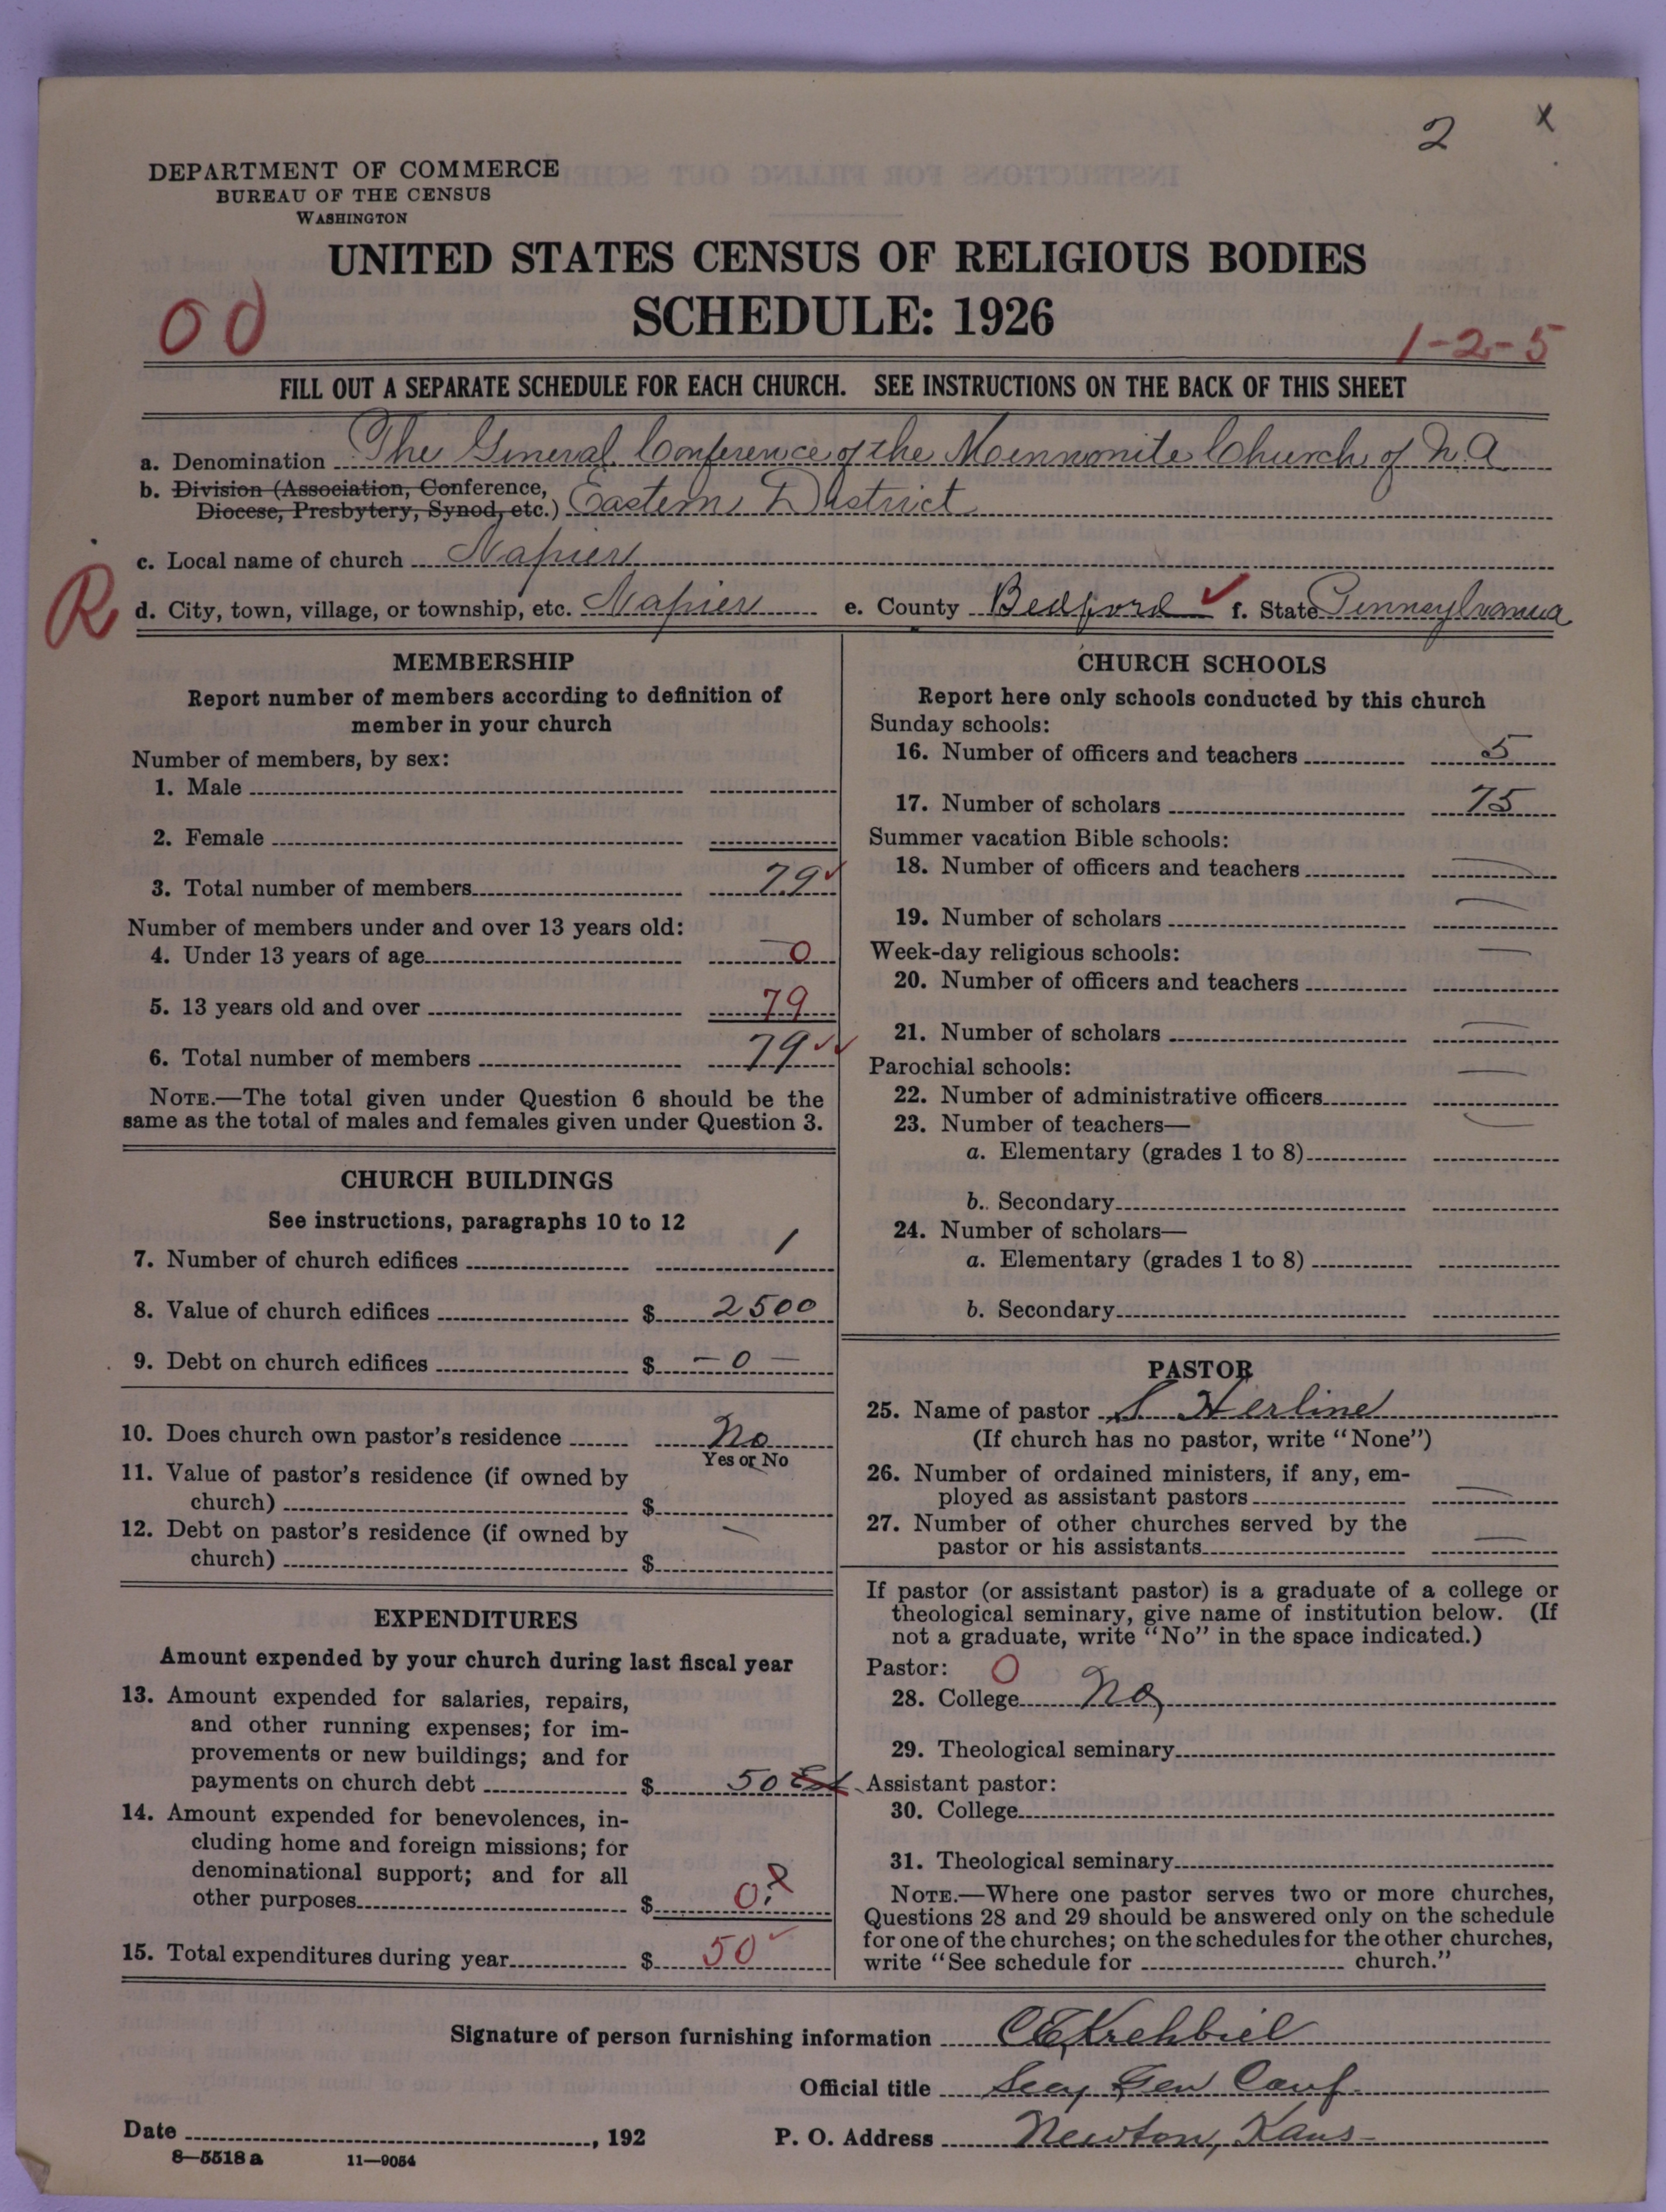 2 x
DEPARTMENT OF COMMERCE
BUREAU OF THE CENSUS
WASHINGTON
UNITED STATES CENSUS OF RELIGIOUS BODIES
SCHEDULE: 1926
00
1-2-5
FILL OUT A SEPARATE SCHEDULE FOR EACH CHURCH. SEE INSTRUCTIONS ON THE BACK OF THIS SHEET
a. Denomination The General Conference of the Mennonite Church of N. A
b. Division (Association, Conference,
Diocese, Presbytery, Synod, etc.) Eastern District
c. Local name of church Napier
R
d. City, town, village, or township, etc. Napier e. County Bedford ✓ f. State Pennsylvania
MEMBERSHIP
Report number of members according to definition of
member in your church
Number of members, by sex:
1. Male
2. Female
3. Total number of members 79 ✓
Number of members under and over 13 years old:
4. Under 13 years of age 0
5. 13 years old and over 79
6. Total number of members 79 ✓✓
NOTE.—The total given under Question 6 should be the
same as the total of males and females given under Question 3.
CHURCH BUILDINGS
See instructions, paragraphs 10 to 12
7. Number of church edifices 1
8. Value of church edifices $ 2500
9. Debt on church edifices $ — 0 —
10. Does church own pastor's residence No
Yes or No
11. Value of pastor's residence (if owned by
church) $
12. Debt on pastor's residence (if owned by
church) $ —
EXPENDITURES
Amount expended by your church during last fiscal year
13. Amount expended for salaries, repairs,
and other running expenses; for im-
provements or new buildings; and for
payments on church debt $ 50 Est
14. Amount expended for benevolences, in-
cluding home and foreign missions; for
denominational support; and for all
other purposes $ 0 ?
15. Total expenditures during year $ 50 ✓
CHURCH SCHOOLS
Report here only schools conducted by this church
Sunday schools:
16. Number of officers and teachers 5
17. Number of scholars 75
Summer vacation Bible schools:
18. Number of officers and teachers —
19. Number of scholars —
Week-day religious schools: —
20. Number of officers and teachers
21. Number of scholars —
Parochial schools: —
22. Number of administrative officers
23. Number of teachers— —
a. Elementary (grades 1 to 8)
b. Secondary
24. Number of scholars—
a. Elementary (grades 1 to 8)
b. Secondary
PASTOR
25. Name of pastor S Herline
(If church has no pastor, write "None")
26. Number of ordained ministers, if any, em-
ployed as assistant pastors —
27. Number of other churches served by the
pastor or his assistants —
If pastor (or assistant pastor) is a graduate of a college or
theological seminary, give name of institution below. (If
not a graduate, write "No" in the space indicated.)
Pastor: 0
28. College No
29. Theological seminary
Assistant pastor:
30. College
31. Theological seminary
NOTE.—Where one pastor serves two or more churches,
Questions 28 and 29 should be answered only on the schedule
for one of the churches; on the schedules for the other churches,
write "See schedule for church."
Signature of person furnishing information C E Krehbiel
Official title Secy Gen Conf.
Date , 192 P. O. Address Newton, Kans
8—5518 a 11—9054